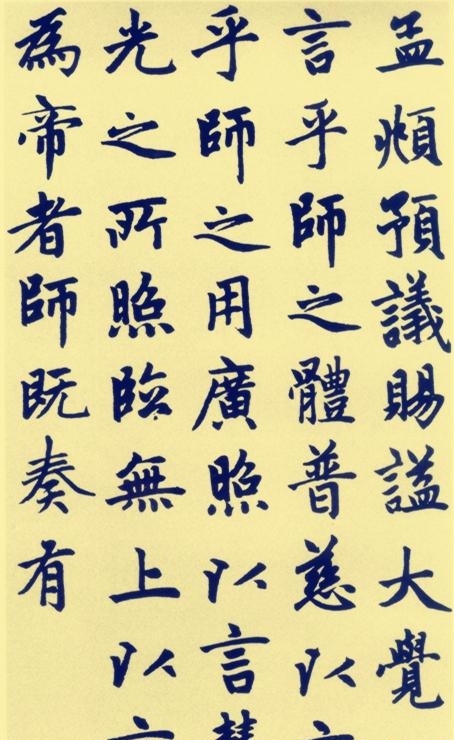 孟頫預議賜謚大覺
言乎師之體普慈以
乎師之用廣照以言
光之所照臨無上以
為帝者師既奏有